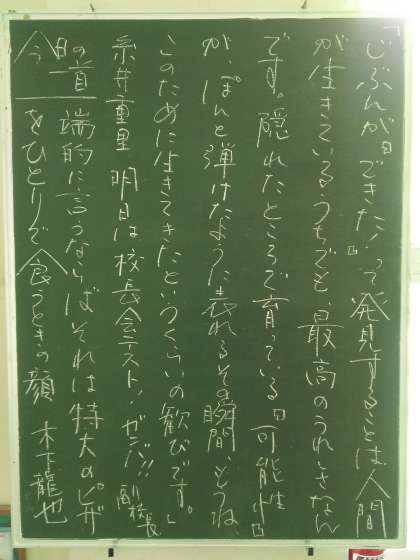 「じぶんが『できた！』って発見することは人間
が生きているうちでも、最高のうれしさなん
です。隠れたところで育っている『可能性』
が、ぽんと弾けたように表れるその瞬間、もうね、
このために生きてきたというくらいの歓びです。」
糸井重里 明日は校長会テスト！ ガンバ!! 副校長
今日の首
端的に言うならばそれは特大のピザ
をひとりで食うときの顔 木下龍也